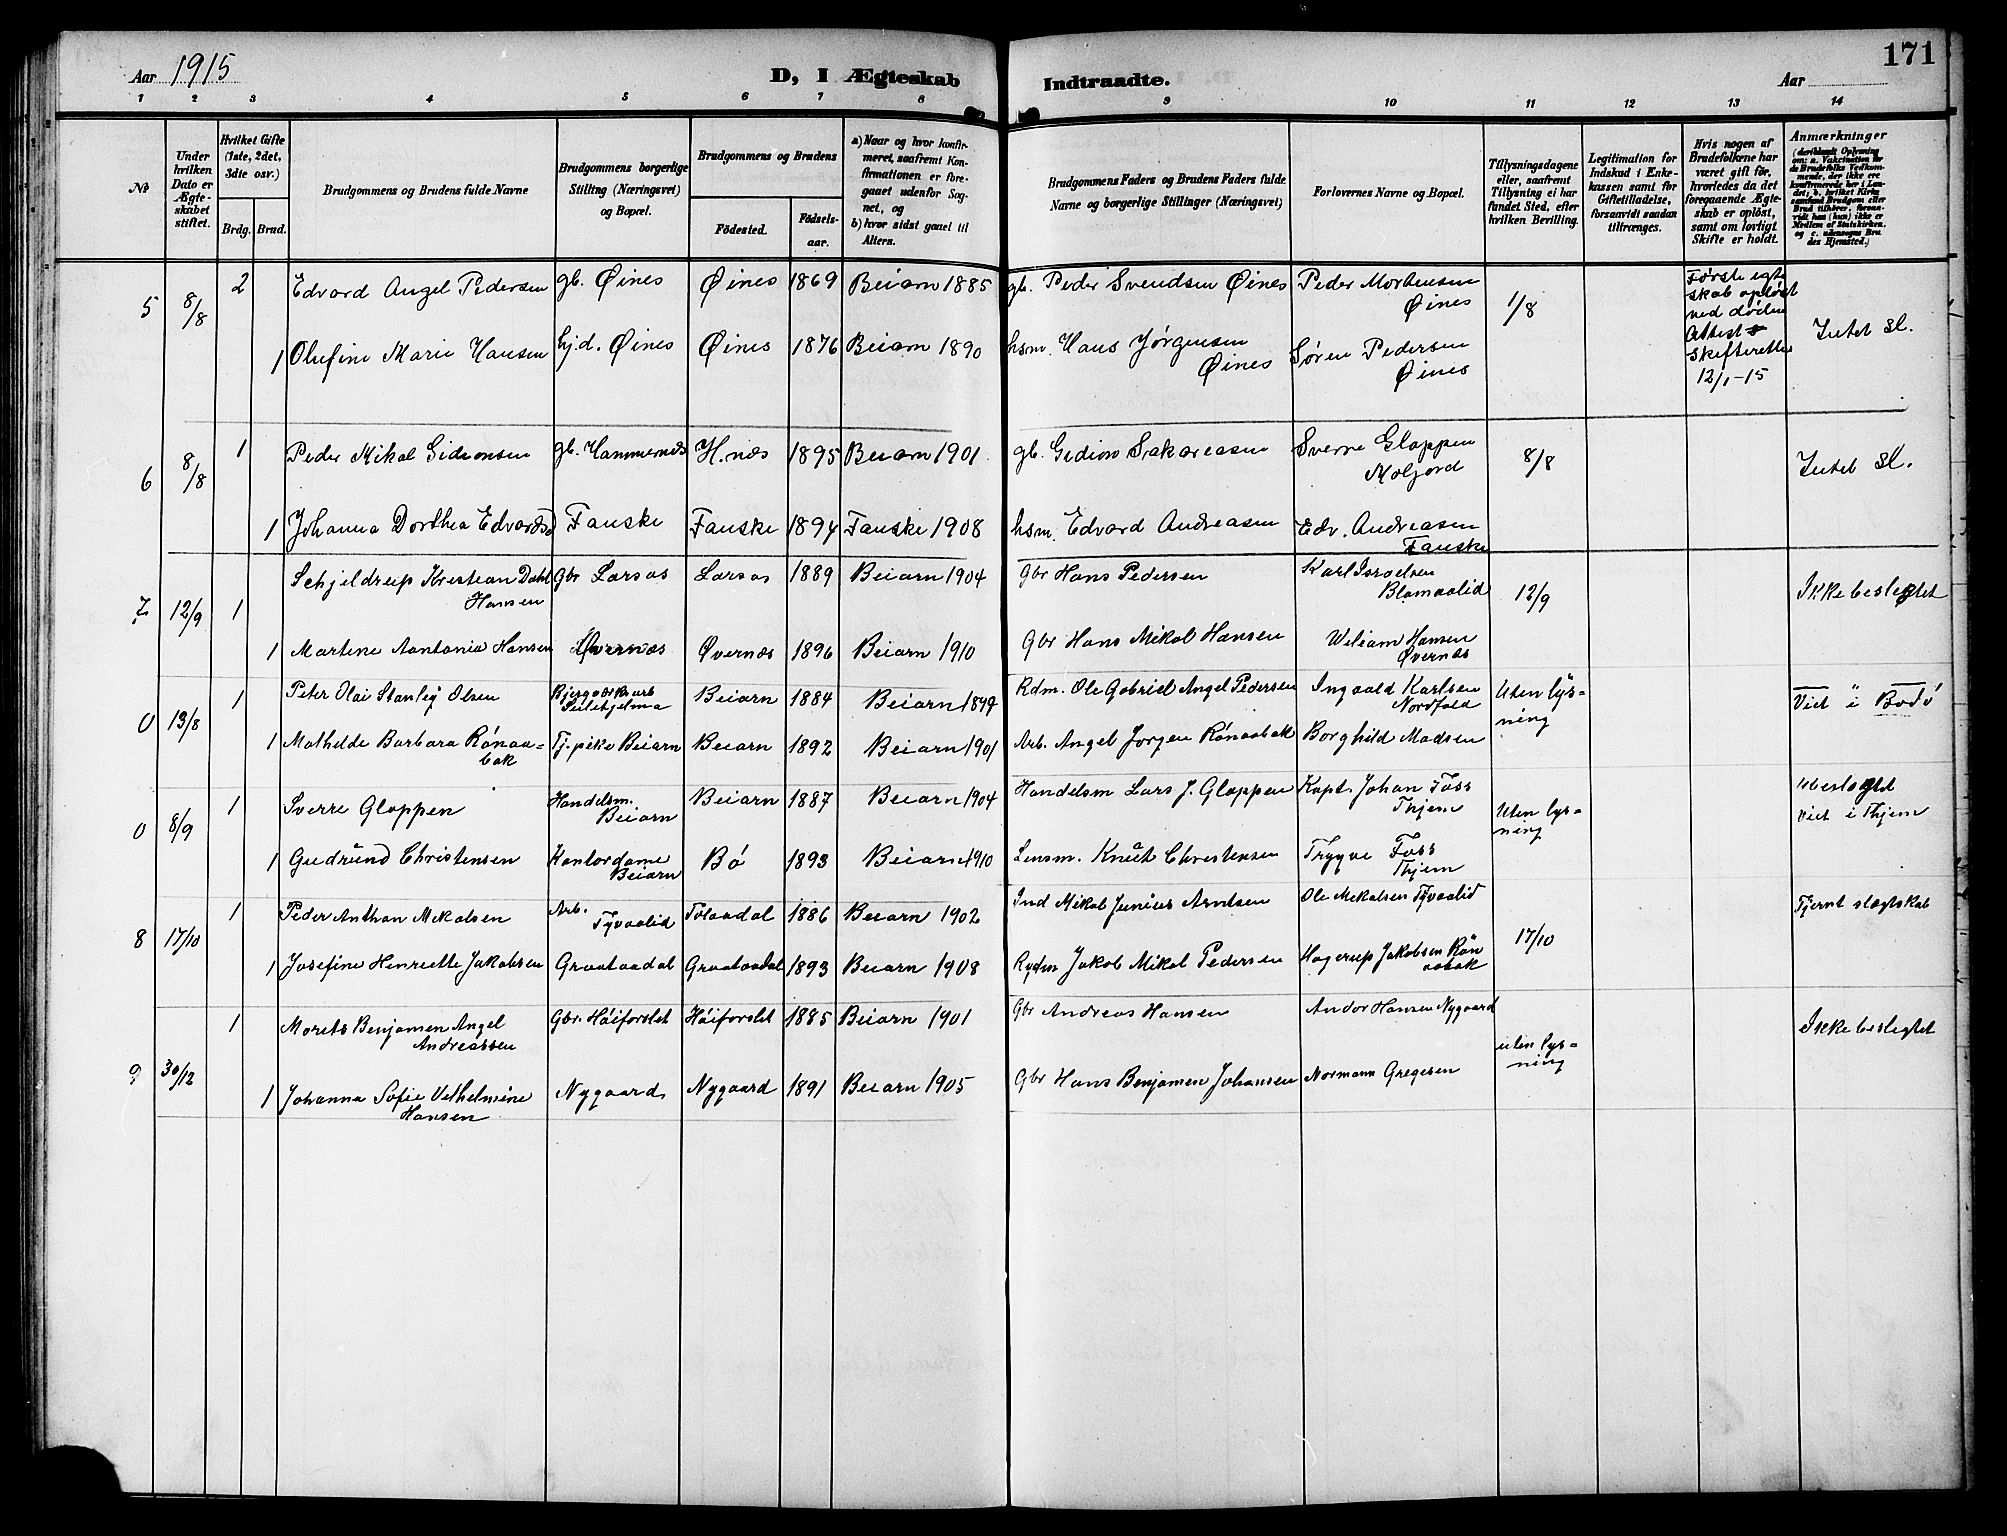 171
Aar 1915
D, I Ægteskab Indtraadte.
Aar
1 2 3 4 5 6 7 8 9 10 11 12 13 14
№
Under hvilken Dato er Ægteskabet stiftet.
Hvilket Gifte (1ste, 2det, 3die osv.)
Brdg. Brud.
Brudgommens og Brudens fulde Navne
Brudgommens borgerlige Stilling (Næringsvei) og Bopæl.
Brudgommens og Brudens
Fødested.
Fødselsaar.
a) Naar og hvor konfirmeret, saafremt Konfirmationen er foregaaet udenfor Sognet, og
b) hvor sidst gaaet til Alters.
Brudgommens Faders og Brudens Faders fulde Navne og borgerlige Stillinger (Næringsvei)
Forlovernes Navne og Bopæl.
Tillysningsdagene eller, saafremt Tillysning ei har fundet Sted, efter hvilken Bevilling.
Legitimation for Indskud i Enkekassen samt for Giftetilladelse, forsaavidt saadan tiltrænges.
Hvis nogen af Brudefolkene har været gift før, hvorledes da det foregaaende Ægteskab er opløst, samt om lovligt Skifte er holdt.
Anmærkninger
5 8/8 2 Edvard Angel Pedersen gb. Øines Øines 1869 Beiarn 1885 gb. Peder Svendsen Øines Peder Mortensen Øines 1/8 Første egteskab opløst ved døden Attest skifteretten 12/1-15 Intet sl.
1 Olufine Marie Hansen hj.d. Øines Øines 1876 Beiarn 1890 hsm. Hans Jørgensen Øines Søren Pedersen Øines
6 8/8 1 Peder Mikal Gideonsen gb. Hammernæs H.næs 1895 Beiarn 1901 gb. Gedion Sakareasen Sverre Gloppen Moljord 8/8 Intet sl.
1 Johanna Dorthea Edvardsd Fauske Fauske 1894 Fauske 1908 hsm. Edvard Andreasen Edv. Andreasen Fauske
7 12/9 1 Schjeldrup Kristian Dahl Hansen Gbr Larsos Larsos 1889 Beiarn 1904 Gbr Hans Pedersen Karl Israelsen Blamoalid 12/9 Ikke beslegtet
1 Martine Aantonia Hansen Øvernæs Øvernæs 1896 Beiarn 1910 Gbr Hans Mikal Hansen Wiliam Hansen Øvernæs
0 13/8 1 Peter Olai Stanley Olsen Bjergverksarb Sulitjelma Beiarn 1884 Beiarn 1849 Rdm. Ole Gabriel Angel Pedersen Ingvald Karlsen Nordfold Uten lysning Viet i Bodö
1 Mathilde Barbara Rónaabak Tj.pike Beiarn Beiarn 1892 Beiarn 1901 Arb. Angel Jorgen Rónaabak Borghild Madsen
0 8/9 1 Sverre Gloppen Handelsm. Beiarn Beiarn 1887 Beiarn 1904 Handelsm Lars J. Gloppen Kapt. Johan Foss Thjem Uten lysning Ubeslegtet Viet i Thjem
1 Gudrund Christensen Kontordame Beiarn Bó 1893 Beiarn 1910 Lensm. Knut Christensen Trygve Foss Thjem
8 17/10 1 Peder Anthon Mikalsen Arb. Tyvaalid Tolaadal 1886 Beiarn 1902 Ind Mikal Junius Arntsen Ole Mikalsen Tyvaalid 17/10 Fjernt slegtskab
1 Josefine Henriette Jakobsen Graataadal Graataadal 1893 Beiarn 1908 Rydm Jakob Mikal Pedersen Hagerup Jakobsen Rónaabak
9 30/12 1 Morits Benjamen Angel Andreassen Gbr. Hóiforslet Hóiforslet 1885 Beiarn 1901 Gbr Andreas Hansen Andor Hansen Nygaard uten lysning Ikke beslegtet
1 Johanna Sofie Vilhelmine Hansen Nygaard Nygaard 1891 Beiarn 1905 Gbr Hans Benjamen Johansen Normann Gregesen